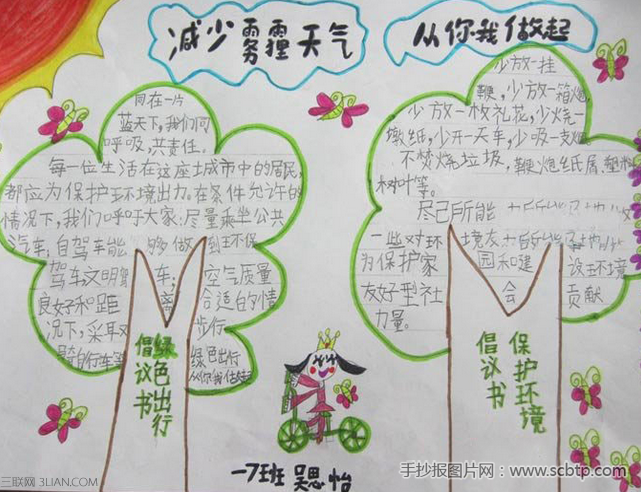 减少雾霾天气
从你我做起
同在一片
蓝天下,我们同
呼吸,共责任。
每一位生活在这座城市中的居民,
都应为保护环境出力。在条件允许的
情况下,我们呼吁大家:尽量乘坐公共
汽车,自驾车能够做到环保
驾车文明驾车;空气质量
良好和距离合适的情
况下,采取步行
自行车等绿色出行
从你我做起
绿色出行
倡议书
少放一挂
鞭,少放一箱炮,
少放一枚礼花,少烧一
墩纸,少开一天车,少吸一支烟,
不焚烧垃圾,鞭炮纸屑,塑料
树叶等。
尽己所能
一些对环境友
为保护家园和建设环境
友好型社会贡献
力量。
保护环境
倡议书
一7班 吴思怡
三联网 3LIAN.COM
手抄报图片网:www.scbtp.com